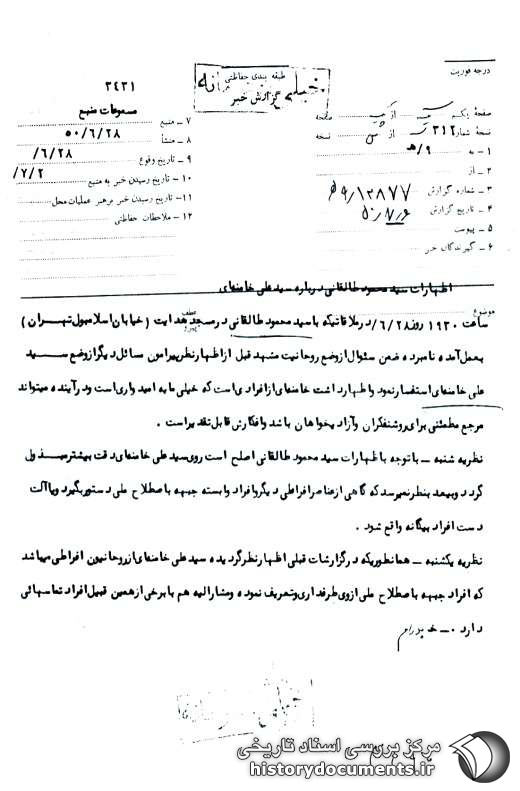 درجه فوریت
طبقه بندی حفاظتی
خیلی محرمانه
گزارش خبر
۳۴۳۱
مسموعات منبع
صفحهٔ یکم از صفحه
نسخهٔ شماره ۳۱۲ از نسخه
۱ – به ۹/ه
۲ – از
۳ – شماره گزارش ۱۲۸۷۷/۹ه
۴ – تاریخ گزارش
۵ – پیوست
۶ – گیرندگان خبر
۷ – منبع
۸ – منشأ ۵۰/۶/۲۸
۹ – تاریخ وقوع ۶/۲۸/
۱۰ – تاریخ رسیدن خبر به منبع ۷/۲/
۱۱ – تاریخ رسیدن خبر برهبر عملیات محل
۱۲ – ملاحظات حفاظتی
موضوع
اظهارات سید محمود طالقانی درباره سید علی خامنه‌ای
عطف
پیرو
ساعت ۱۹۳۰ روز ۶/۲۸/ در ملاقاتیکه با سید محمود طالقانی در مسجد هدایت (خیابان اسلامبول تهران)
بعمل آمده نامبرده ضمن سئوال از وضع روحانیت مشهد قبل از اظهار نظر پیرامون مسائل دیگر از وضع سید
علی خامنه‌ای استفسار نمود و اظهار داشت خامنه‌ای از افرادی است که خیلی ما به امیدواری است و در آینده میتواند
مرجع مطمئنی برای روشنفکران و آزادیخواهان باشد و افکارش قابل تقدیر است .
نظریه شنبه – با توجه با ظهارات سید محمود طالقانی اصلح است روی سید علی خامنه‌ای دقت بیشتر مبذول
گردد و بعید بنظر نمیرسد که گاهی از عناصر افراطی دیگر و افراد وابسته جبهه باصطلاح ملی دستور بگیرد و یا آلت
دست افراد بیگانه واقع شود .
نظریه یکشنبه – همانطوریکه در گزارشات قبلی اظهار نظر گردیده سید علی خامنه‌ای از روحانیون افراطی میباشد
که افراد جبهه باصطلاح ملی از وی طرفداری و تعریف نموده و مشارالیه هم با برخی از همین قبیل افراد تماسهائی
دارد .
مرکز بررسی اسناد تاریخی
historydocuments.ir